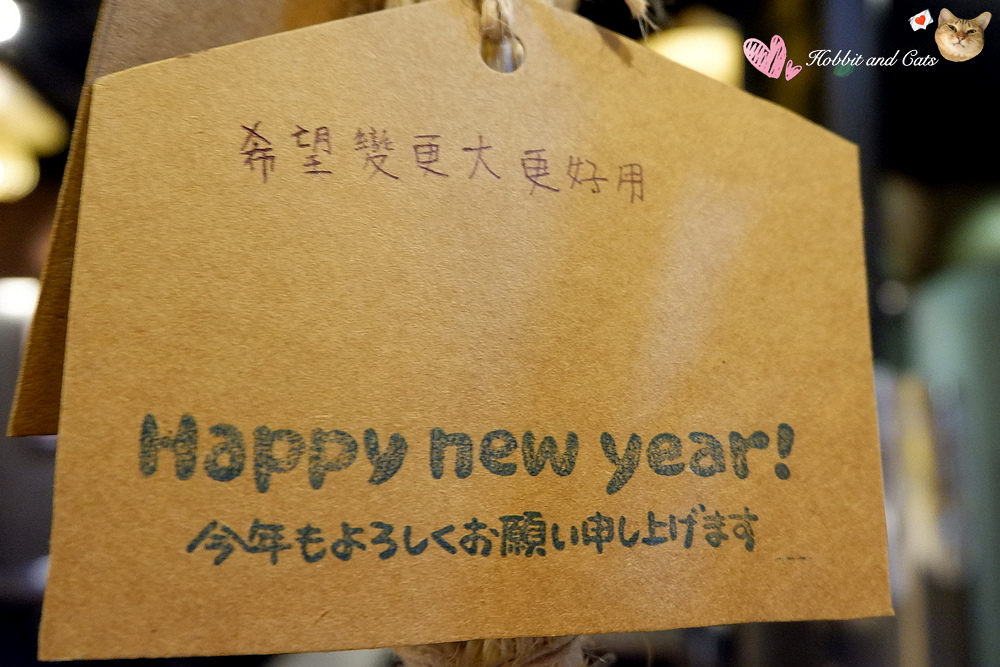 Hobbit and Cats
希望變更大更好用
Happy new year!
今年もよろしくお願い申し上げます